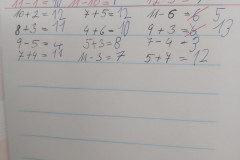 10+2=12 7+5=12 11-6=6 5
8+3=11 4+6=10 9+3=6 13
9-5=4 5+3=8 7-4=3
7+4=11 11-3=7 5+7=12